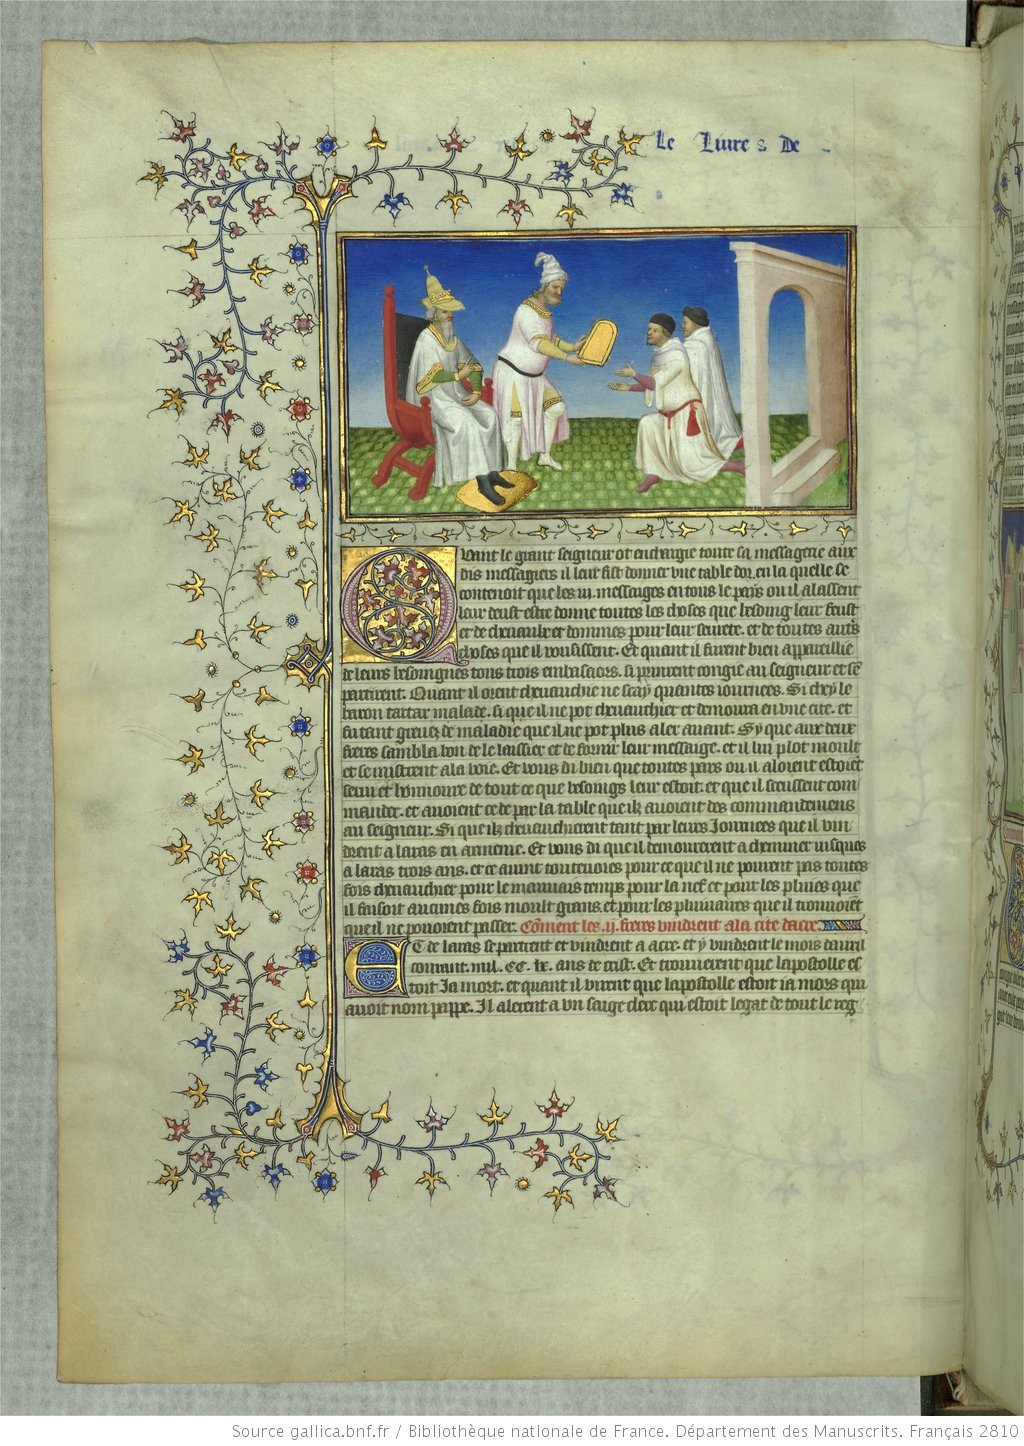 Le Liures De
Quant le grant seigneur ot enchargie toute sa messagerie aux
dis messagiers il leur fist donner vne table dor. en la quelle se
contenoit que les .iii. messaiges en tous le pays ou il alassent
leur deust estre donne toutes les choses que besoing leur feust
et de cheuaulx et dommes pour leur seurte. et de toutes autres
choses que il voulsissent. Et quant il furent bien appareillie
de leurs besoingnes tous trois embasaors. si prinrent congie au seigneur et se
partirent. Quant il orent cheuauche ne scay quantes iournees. Si chey le
baron tartar malade. si que il ne pot cheuauchier et demoura en vne cite. et
fu tant greuez de maladie que il ne pot plus aler auant. Sy que aux deux
freres sambla bon de le laissier et de fornir leur messaige. et il lui plot moult
et se mistrent a la voie. Et vous di bien que toutes pars ou il aloient estoient
serui et honnoure de tout ce que besoings leur estoit. et que il sceussent com
mander. et auoient ce de par la table que ilz auoient des commandemens
au seigneur. Si que ilz cheuauchierent tant par leurs Iournees que il vin
drent a laias en armenie. Et vous di que il demourerent a cheminer iusques
a laias trois ans. et ce auint touteuoies pour ce que il ne pouuent pas toutes
fois cheuauchier pour le mauuais temps pour la nef et pour les pluies que
il faisoit aucunes fois moult grans. et pour les pluuiaires que il trouuoient
que il ne pouoient passer. Comment les .ij. freres vindrent a la cite dacre.
Et de laias se partirent et vindrent a acre. et y vindrent le mois dauril
courant. mil. CC. lx. ans de crist. Et trouuerent que lapostolle es
toit Ja mort. et quant il virent que lapostolle estoit ia mors qui
auoit nom pappe. Il alerent a vn saige clerc qui estoit legat de tout le reg
Source gallica.bnf.fr / Bibliothèque nationale de France. Département des Manuscrits. Français 2810